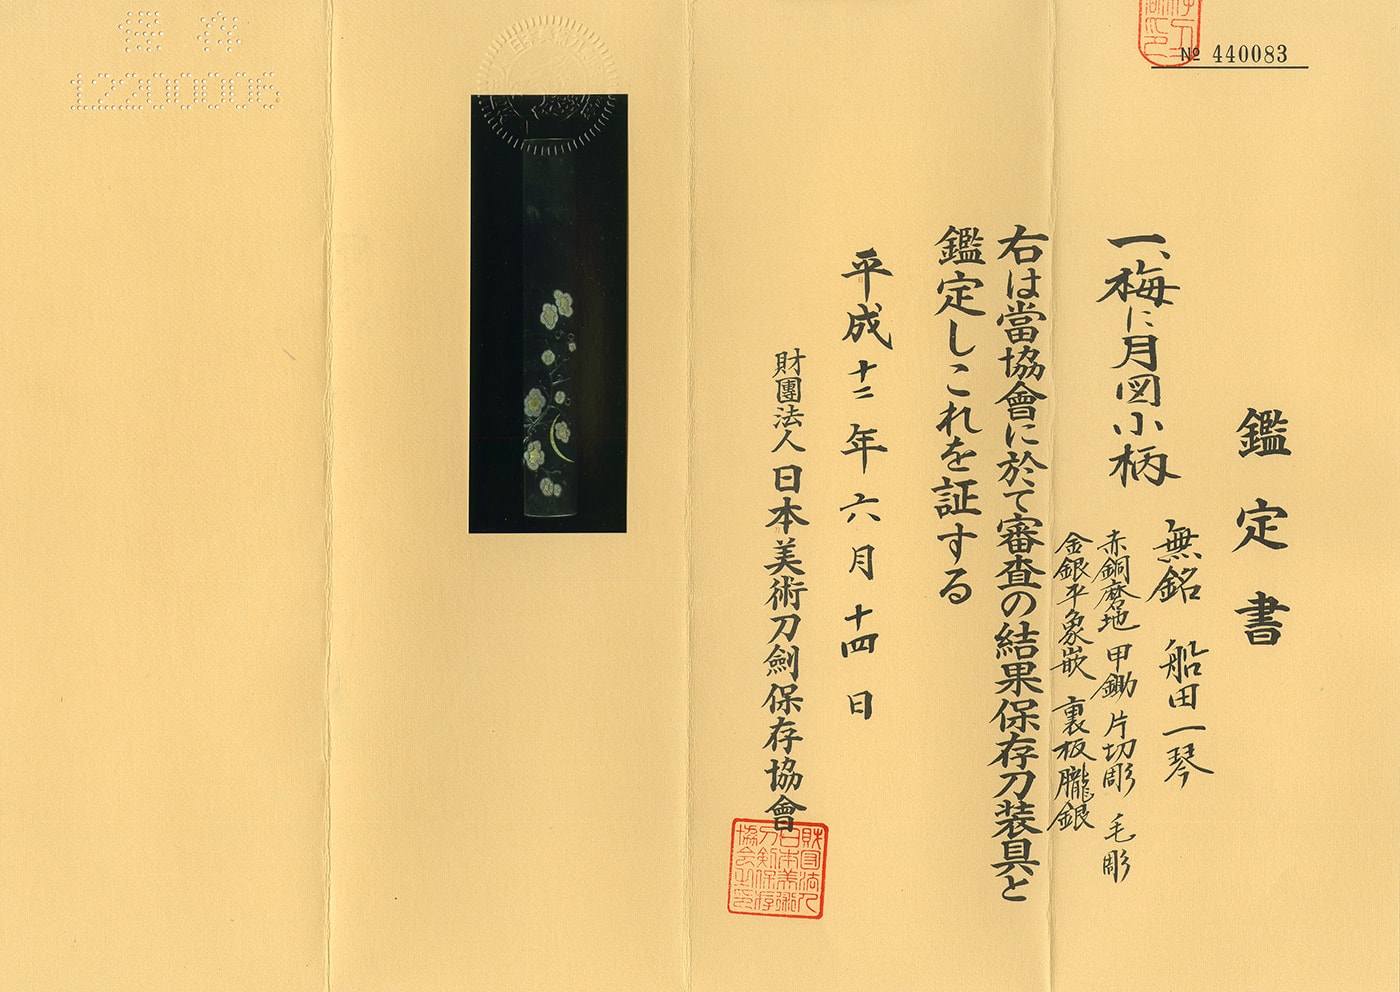 № 440083
鑑定書
一、梅に月図小柄
無銘 船田一琴
赤銅磨地 甲鋤 片切彫 毛彫
金銀平象嵌 裏板朧銀
右は當協會に於て審査の結果保存刀装具と
鑑定しこれを証する
平成十二年六月十四日
財團法人日本美術刀劍保存協會
財団法人
日本美術
刀剣保存
協会之印
保存
12200006